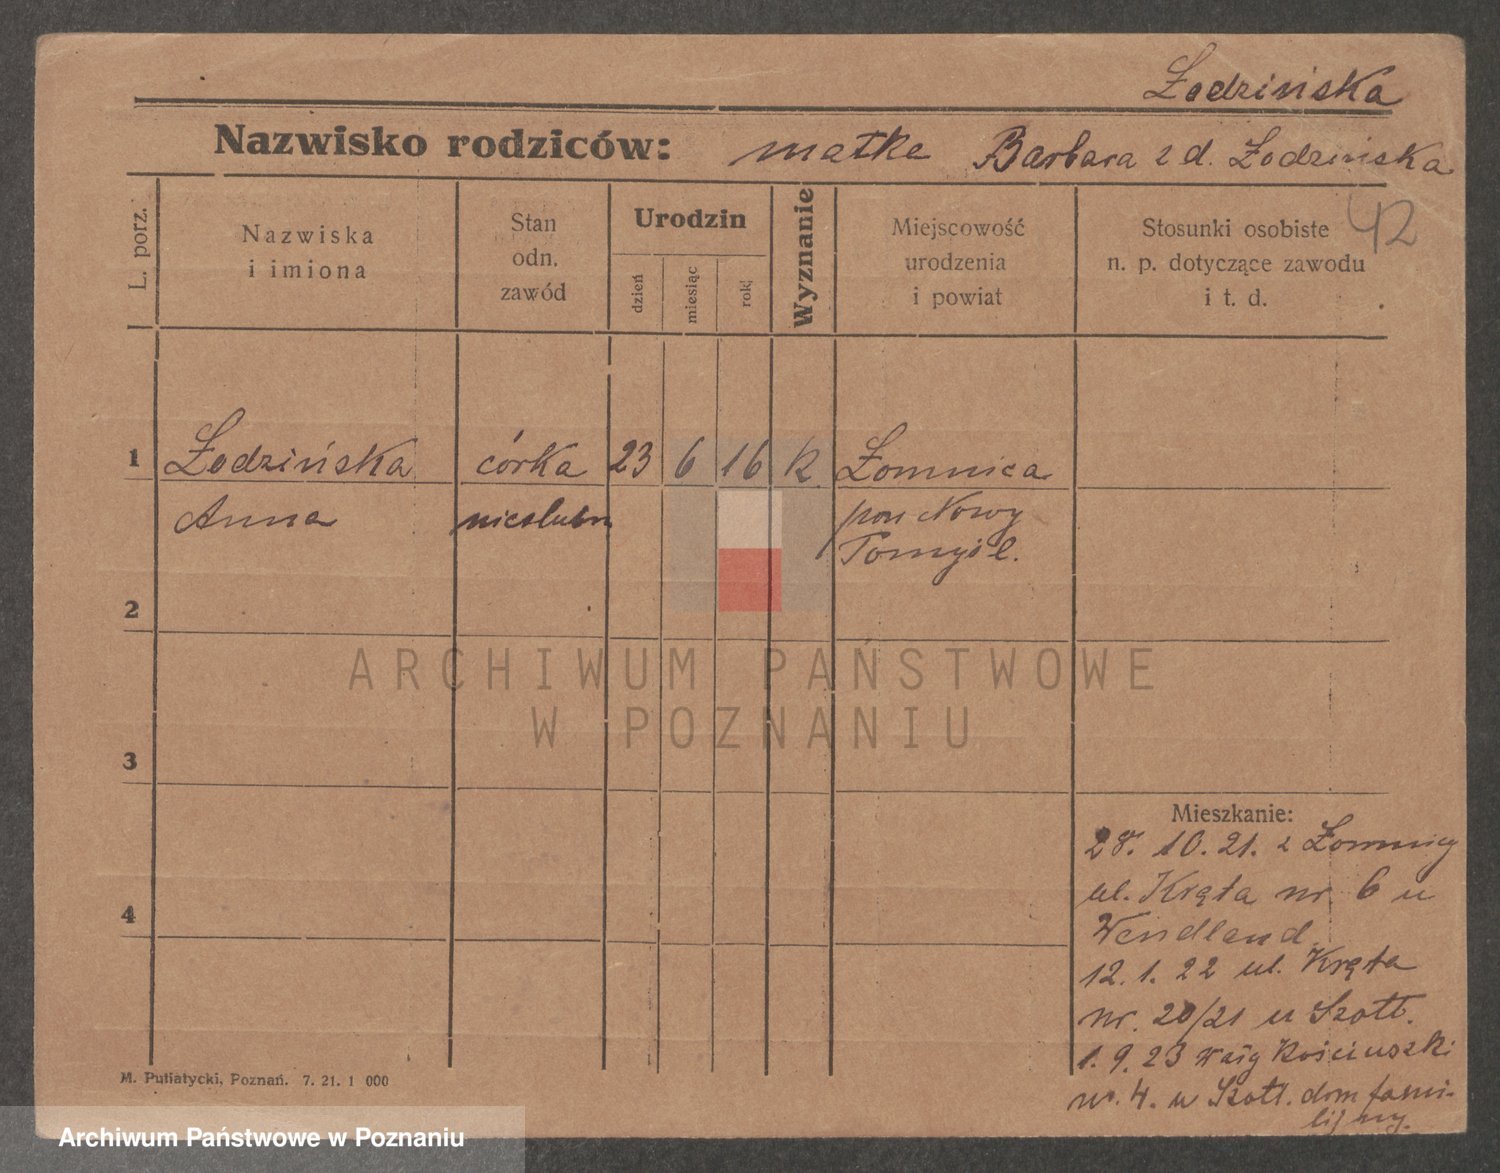 Łodzińska
Nazwisko rodziców: matka Barbara z d. Łodzińska
42
L. porz.
Nazwiska
i imiona
Stan
odn.
zawód
Urodzin
dzień
miesiąc
rok
Wyznanie
Miejscowość
urodzenia
i powiat
Stosunki osobiste
n. p. dotyczące zawodu
i t. d.
1 Łodzińska córka 23 6 16 k. Łomnica
Anna nieślubn pow Nowy
Tomyśl.
2
3
4
Mieszkanie:
28. 10. 21. z Łomnicy
ul. Kręta nr 6 u
Wendland.
12. 1. 22 ul. Kręta
nr. 20/21 u Szott.
1. 9. 23 Kościuszki
nr. 4. u Szott. dom fami-
lijny.
M. Putiatycki, Poznań. 7. 21. 1 000
ARCHIWUM PAŃSTWOWE
W POZNANIU
Archiwum Państwowe w Poznaniu